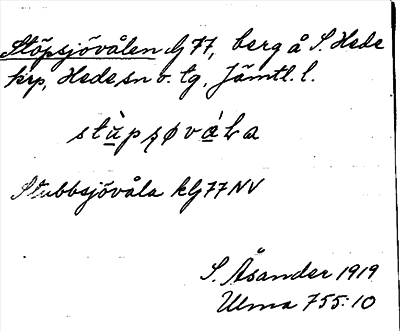 Stöpsjövålen G 77, berg å S. Hede
krp, Hede sn o. tg, Jämtl. l.
stàpʂøvàLa
Stubbsjövåla kG77NV
S. Åsander 1919
Ulma 755:10